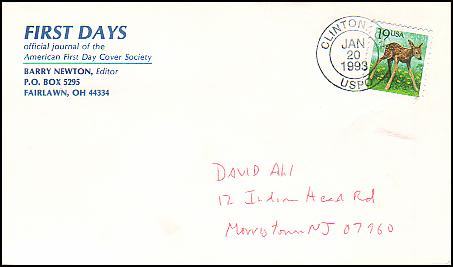 FIRST DAYS
official journal of the
American First Day Cover Society
BARRY NEWTON, Editor
P.O. BOX 5295
FAIRLAWN, OH 44334
CLINTON
JAN
20
1993
USPO
19 USA
DAVID Ahl
12 Indian Head Rd
Morristown NJ 07960